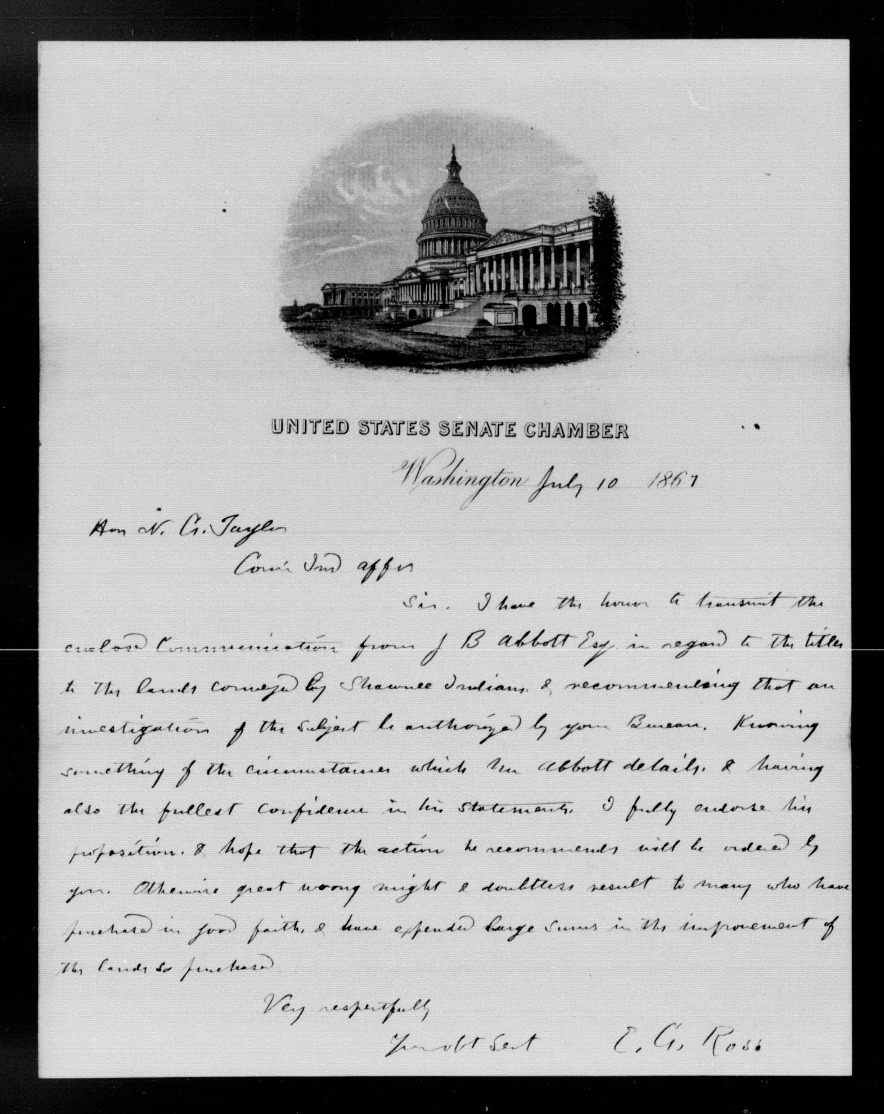 UNITED STATES SENATE CHAMBER
Washington July 10 1867
Hon N. G. Taylor
Com'r Ind affrs
Sir. I have the honor to transmit the
enclosed Communication from J B Abbott Esq. in regard to the titles
to the lands conveyed by Shawnee Indians, & recommending that an
investigation of the subject be authorized by your Bureau. Knowing
something of the circumstances which Mr Abbott details, & having
also the fullest confidence in his statements, I fully endorse his
proposition, & hope that the action he recommends will be ordered by
you. Otherwise great wrong might & doubtless result to many who have
purchased in good faith, & have expended large sums in the improvement of
the lands so purchased
Very respectfully
Your obt Servt E. G. Ross